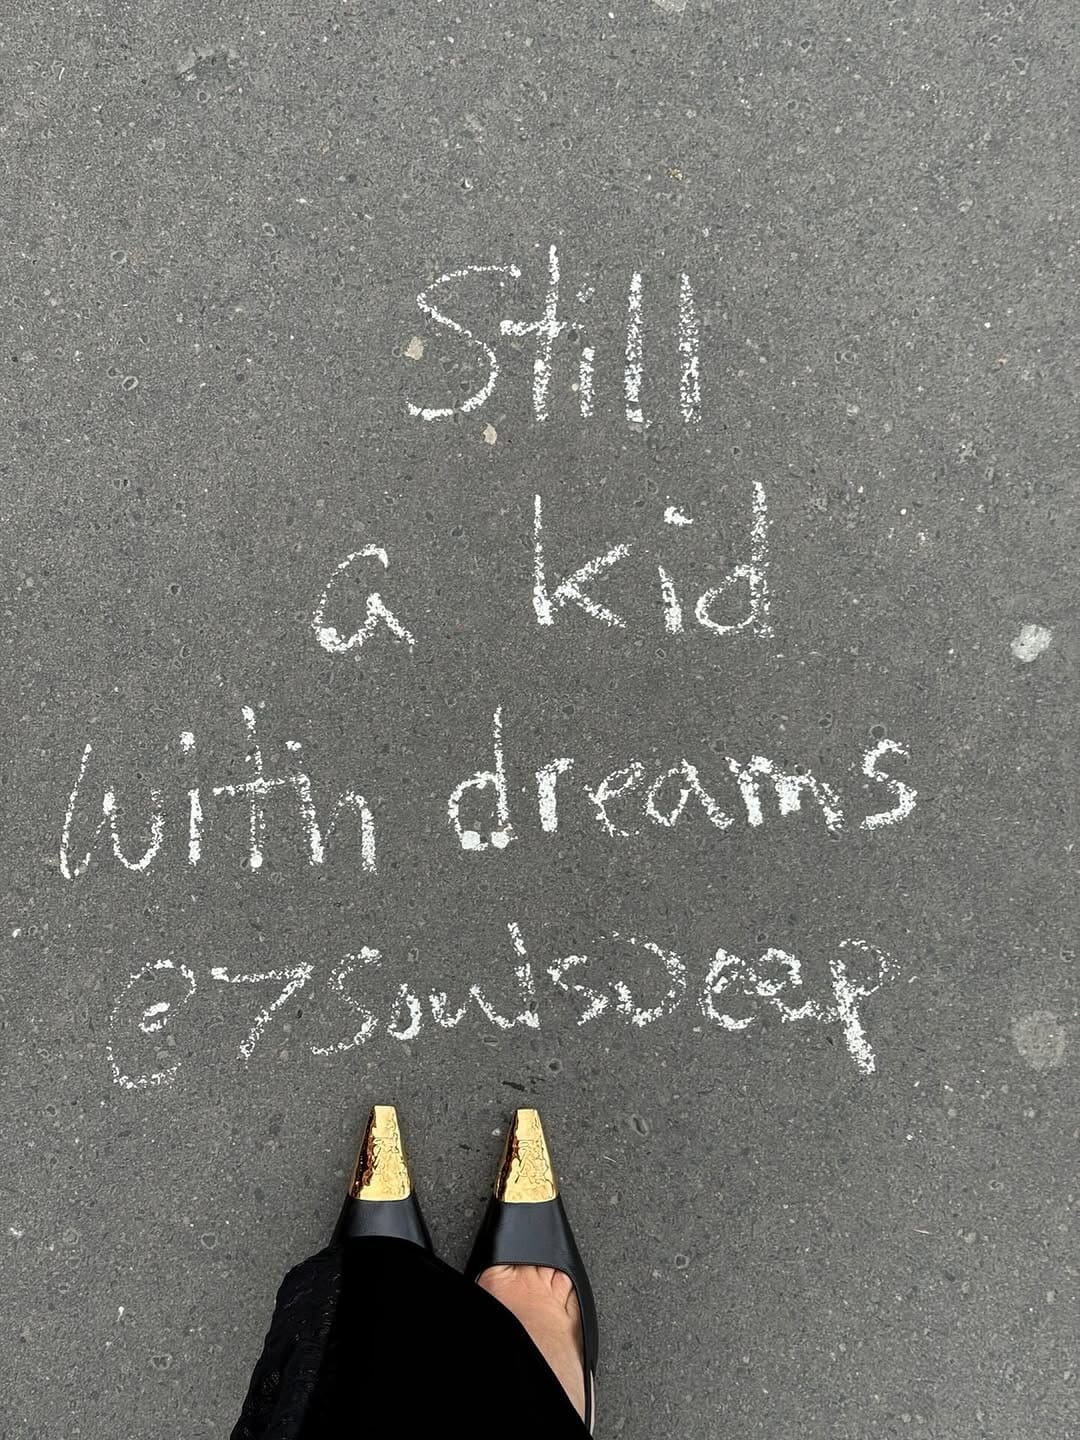 Still
a kid
with dreams
@7soulsdeep